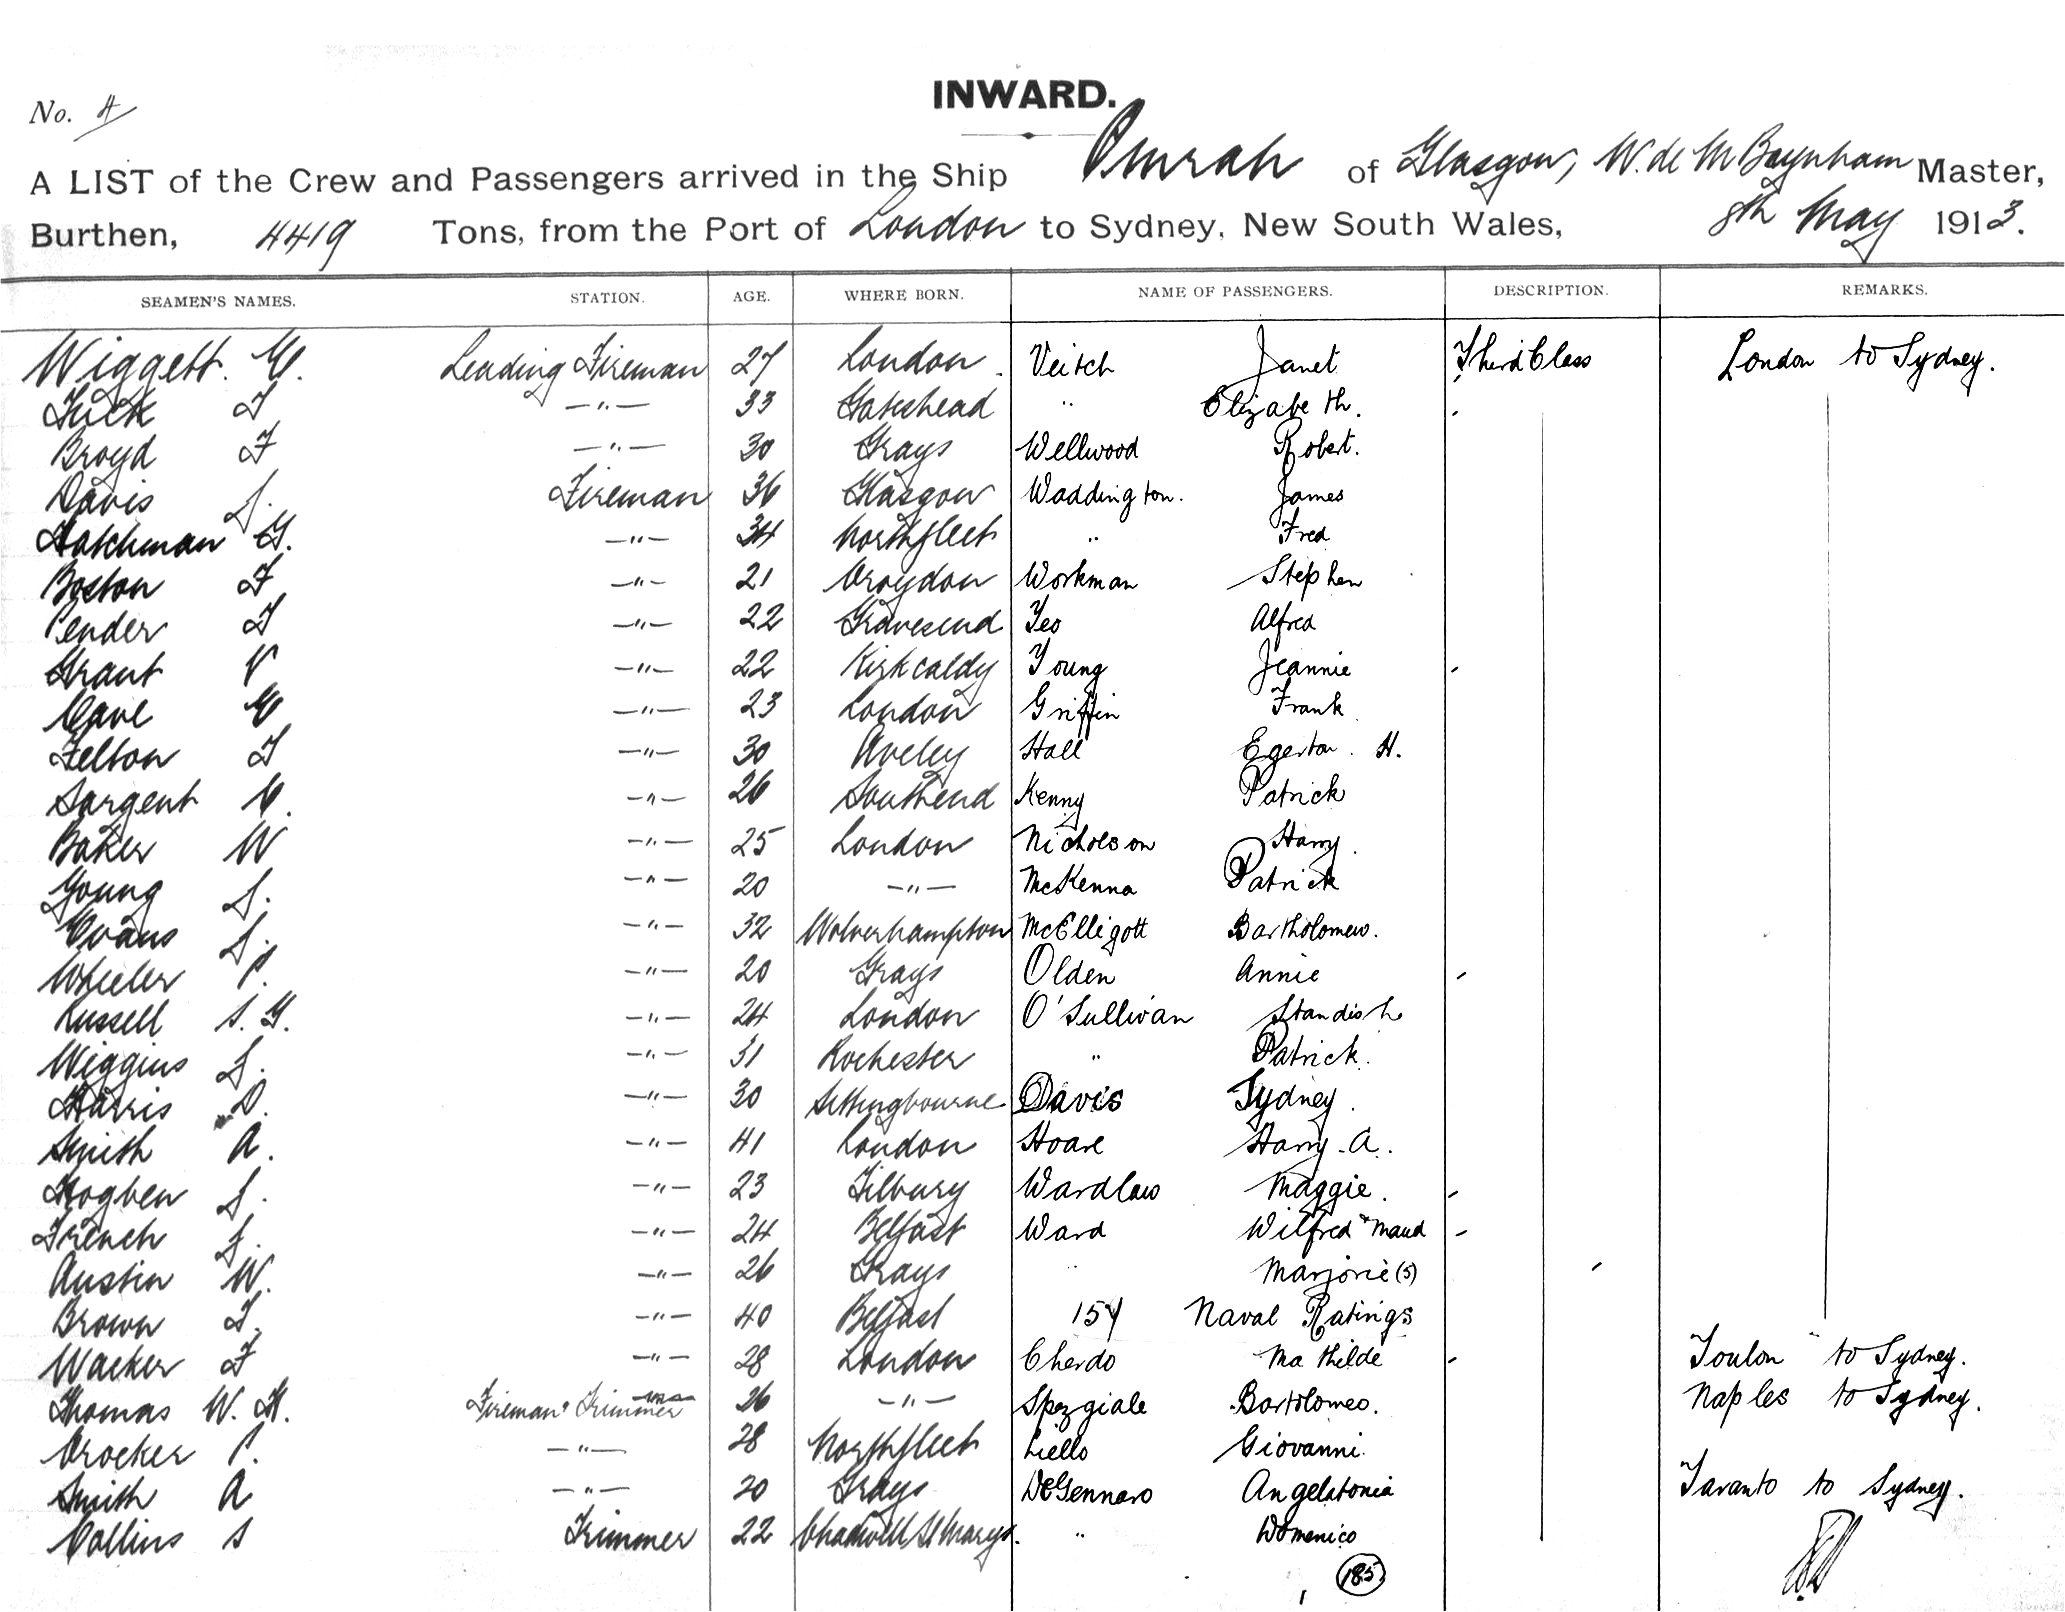 INWARD.
No. 4
A LIST of the Crew and Passengers arrived in the Ship Omrah of Glasgow, W. de M Baynham Master,
Burthen, 4419 Tons, from the Port of London to Sydney, New South Wales, 8th May 1913.
SEAMEN'S NAMES. STATION. AGE. WHERE BORN. NAME OF PASSENGERS. DESCRIPTION. REMARKS.
Wiggett. Leading Fireman 27 London Veitch Janet Third Class London to Sydney.
Tuck —"— 33 Gateshead " Elizabeth.
Broyd F —"— 30 Grays Wellwood Robert.
Davis J. Fireman 36 Glasgow Waddington. James
Hatchman G. —"— 34 Northfleet " Fred
Boston F —"— 21 Croydon Workman Stephen
Pender —"— 22 Gravesend Yeo Alfred
Grant —"— 22 Kirkcaldy Young Jeannie
Cave —"— 23 London Griffin Frank
Felton —"— 30 Aveley Hall Egerton. H.
Sargent —"— 26 Southend Kenny Patrick
Baker W —"— 25 London Nicholson Harry.
Young J. —"— 20 —"— McKenna Patrick
Evans J. —"— 32 Wolverhampton McElligott Bartholomew.
Wheeler P. —"— 20 Grays Olden Annie
Russell S. G. —"— 24 London O'Sullivan Standish
Wiggins J. —"— 31 Rochester " Patrick.
Harris D. —"— 30 Sittingbourne Davis Sydney.
Smith A. —"— 41 London Hoare Harry. A.
Hogben J. —"— 23 Tilbury Wardlaw Maggie.
French J. —"— 24 Belfast Ward Wilfred & Maud
Austin W. —"— 26 Grays " Marjorie (5)
Brown T. —"— 40 Belfast 157 Naval Ratings
Wacker F —"— 28 London Cherdo Mathilde Toulon to Sydney.
Thomas W. H. Fireman & Trimmer 26 —"— Spezgiale Bartolomeo. Naples to Sydney.
Crocker P. —"— 28 Northfleet Liello Giovanni.
Smith A —"— 20 Grays De Gennaro Angelatonia Taranto to Sydney.
Collins S Trimmer 22 Chadwell St Marys. " Domenico
185